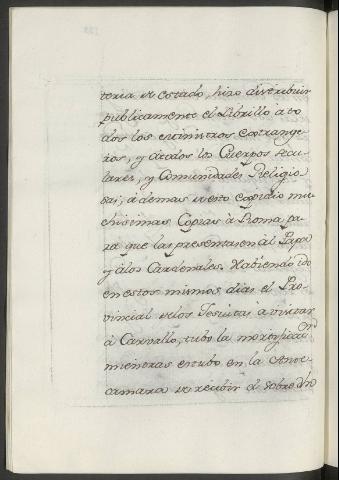 teria de estado, hizo distribuir
publicamente el Librillo a to
dos los Ministros estrange
ros, y átodos los Cuerpos secu
lares, y Comunidades Religio
sas; ademas de esto expidio mu
chisimas Copias à Roma pa
ra que las presentasen al Papa
y álos Cardenales. Habiendo ido
en estos mismos dias el Pro
vincial delos Jesuitas à visitar
à Carvallo, tubo la mortificac.on
mientras estubo en la Ante
camara de recibir el sobre dho